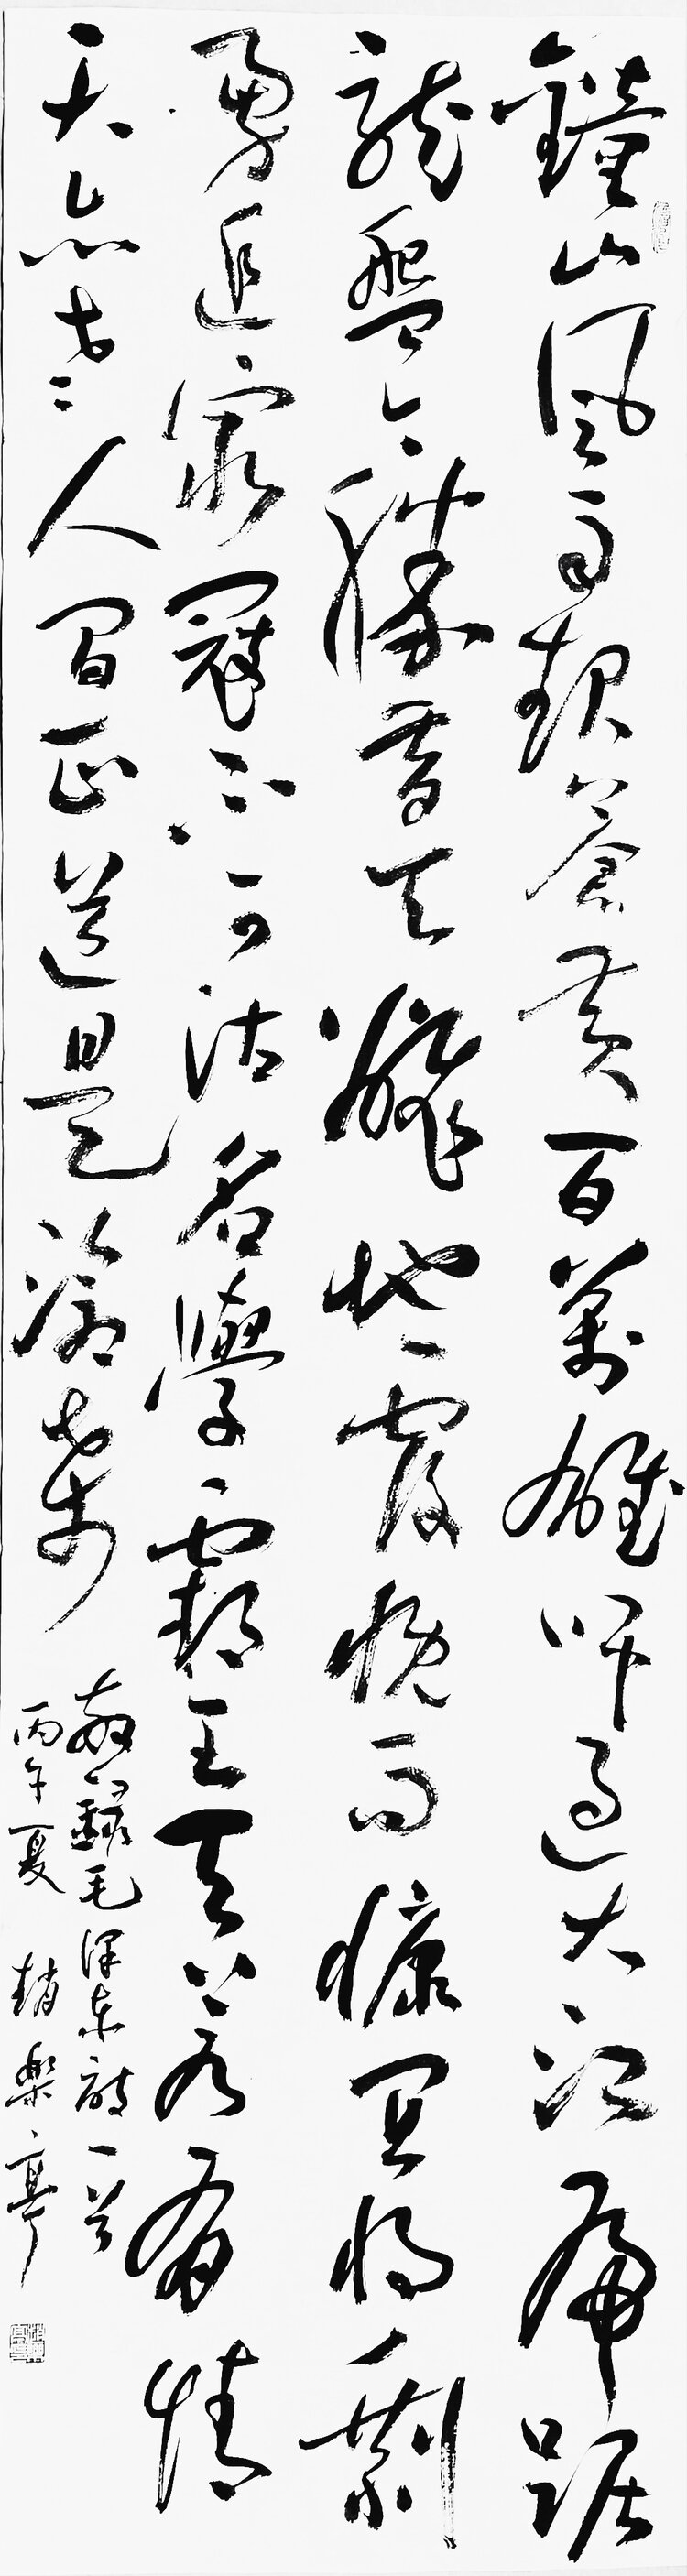 鐘山風雨起蒼黃百萬雄師過大江虎踞
龍盤今勝昔天翻地覆慨而慷宜將剩
勇追窮寇不可沽名學霸王天若有情
天亦老人間正道是滄桑
敬錄毛澤東詩一首
丙午夏 趙樂亭